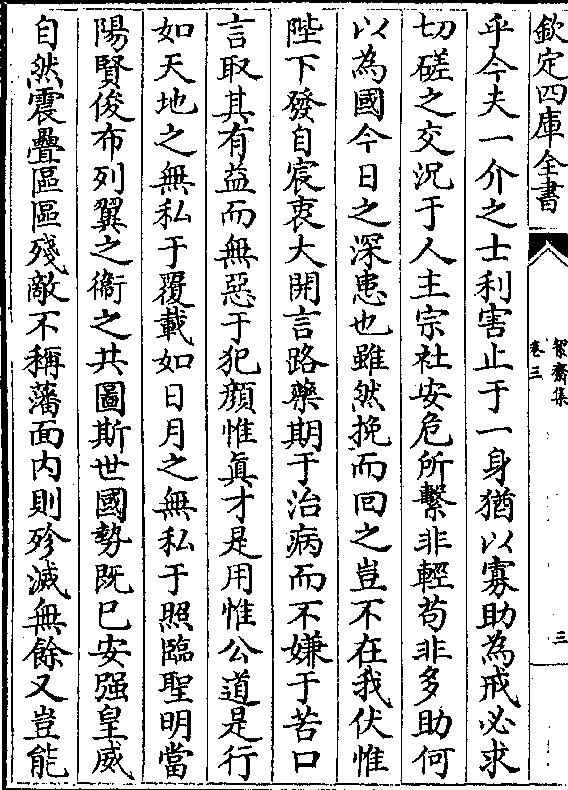 欽定四庫全書
絜齋集
卷三
三
乎今夫一介之士利害止于一身猶以寡助為戒必求
切磋之交況于人主宗社安危所繫非輕茍非多助何
以為國今日之深患也雖然挽而回之豈不在我伏惟
陛下發自宸衷大開言路藥期于治病而不嫌于苦口
言取其有益而無惡于犯顔惟真才是用惟公道是行
如天地之無私于覆載如日月之無私于照臨聖明當
陽賢俊布列翼之衞之共圖斯世國勢既已安强皇威
自然震疊區區殘敵不稱藩面内則殄滅無餘又豈能